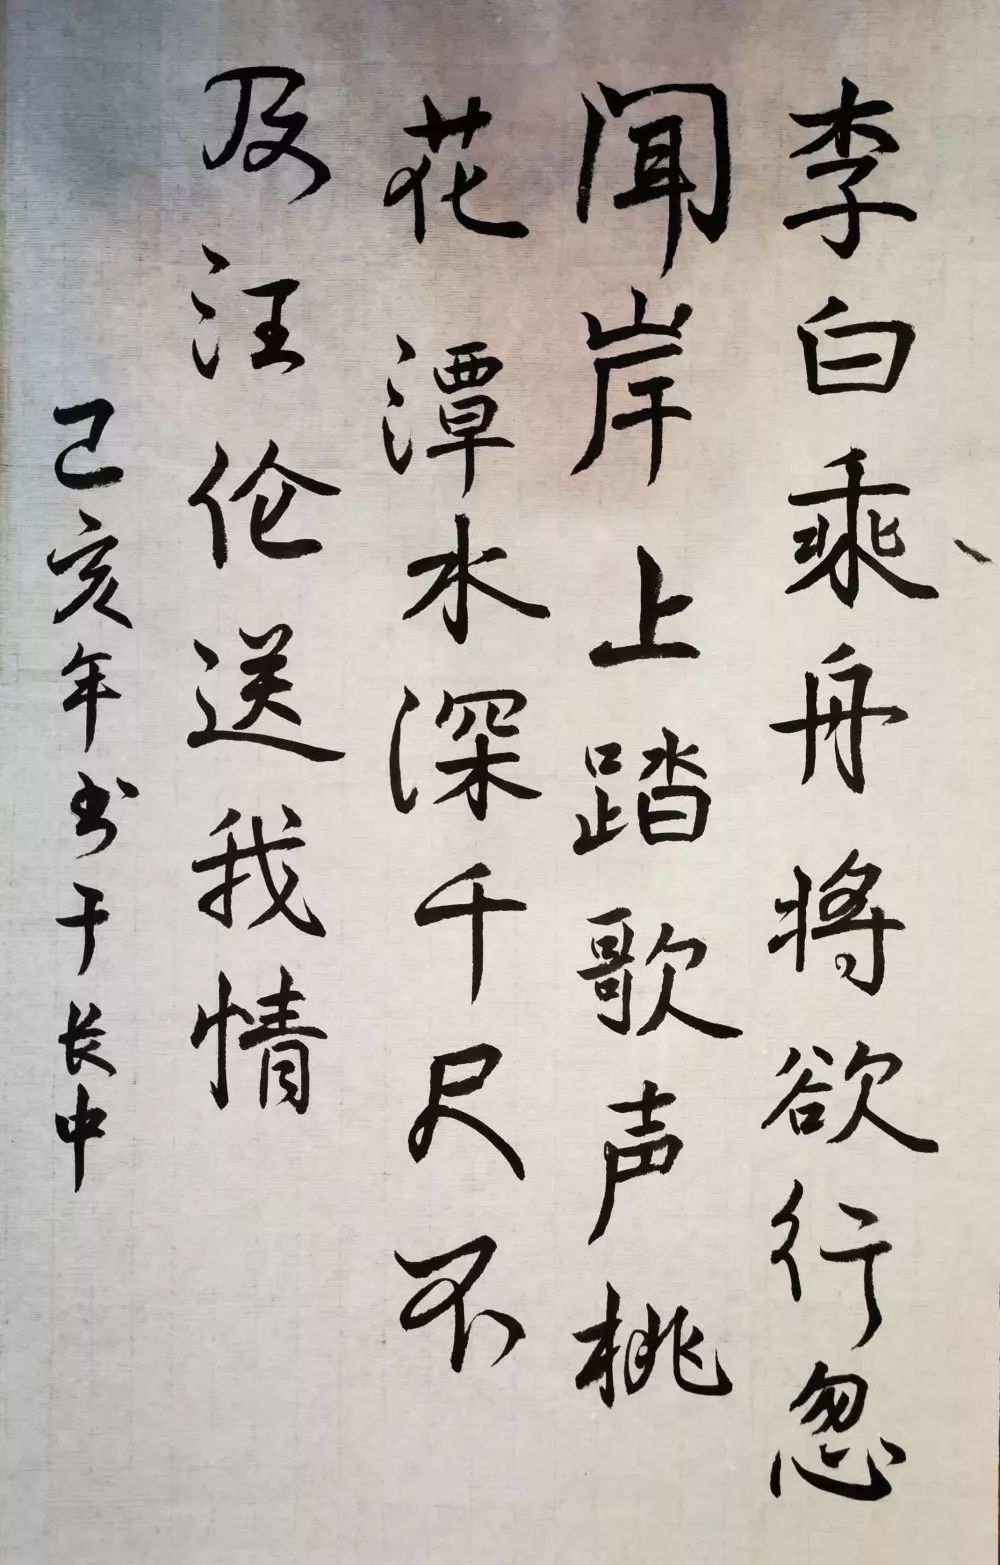 李白乘舟将欲行忽
闻岸上踏歌声桃
花潭水深千尺不
及汪伦送我情
己亥年书于长中